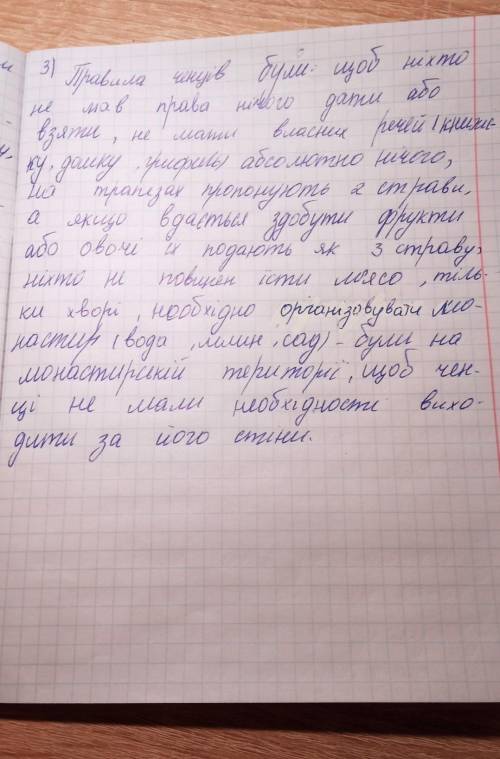 3) Правила ченців були: щоб ніхто
не мав права нічого дати або
взяти, не мати власних речей (книжи-
ку, дошку, грифель) абсолютно нічого,
на трапезах пропонують 2 страви,
а якщо вдасться здобути фрукти
або овочі їх подають як 3 страву,
ніхто не повинен їсти м'ясо, тіль-
ки хворі, необхідно організовувати мо-
настир (вода, млин, сад) - були на
монастирській території, щоб чен-
ці не мали необхідності вихо-
дити за його стіни.